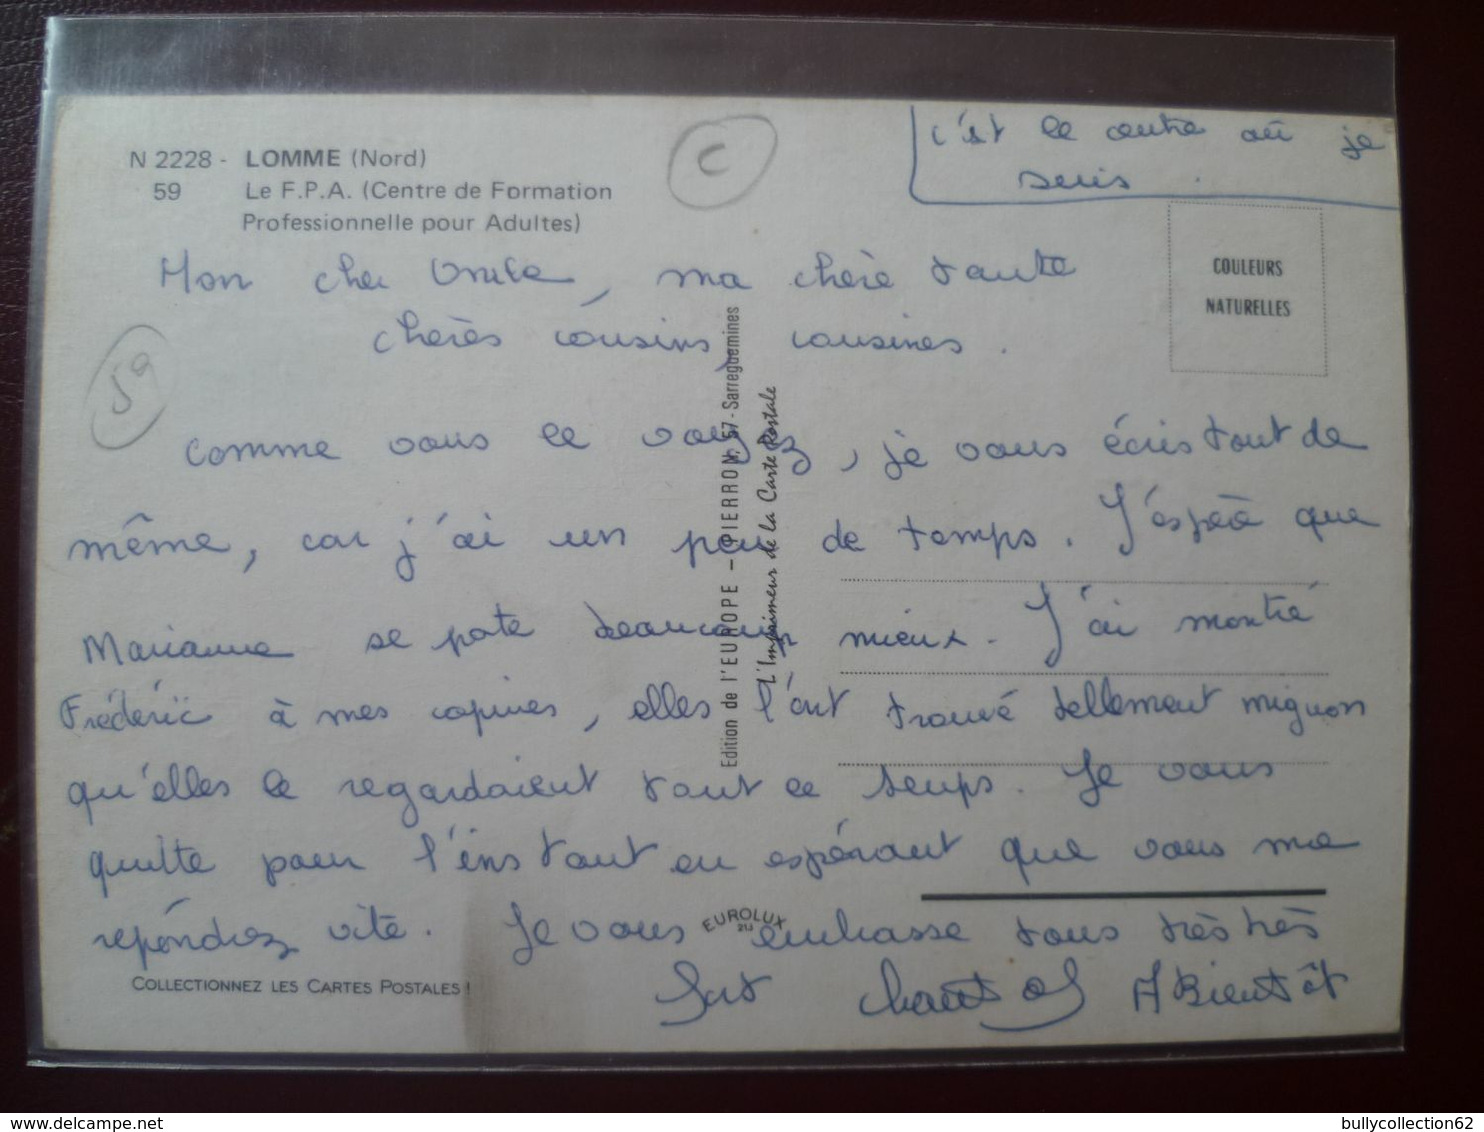 c'est le centre où je
suis.
C
N 2228 - LOMME (Nord)
59 Le F.P.A. (Centre de Formation
Professionnelle pour Adultes)
COULEURS
NATURELLES
Mon cher Oncle, ma chère tante
chères cousins, cousines.
comme vous le voyez, je vous écris tout de
même, car j'ai un peu de temps. J'espère que
Marianne se porte beaucoup mieux. J'ai montré
Fréderïc à mes copines, elles l'ont trouvé tellement mignon
qu'elles le regardaient tout le temps. Je vous
quitte pour l'instant en espérant que vous me
répondrez vite. Je vous embrasse tous très très
fort Chantal A Bientôt
Edition de l'EUROPE - PIERRON, 57 - Sarreguemines
L'Imprimeur de la Carte Postale
EUROLUX
COLLECTIONNEZ LES CARTES POSTALES !
bullycollection62